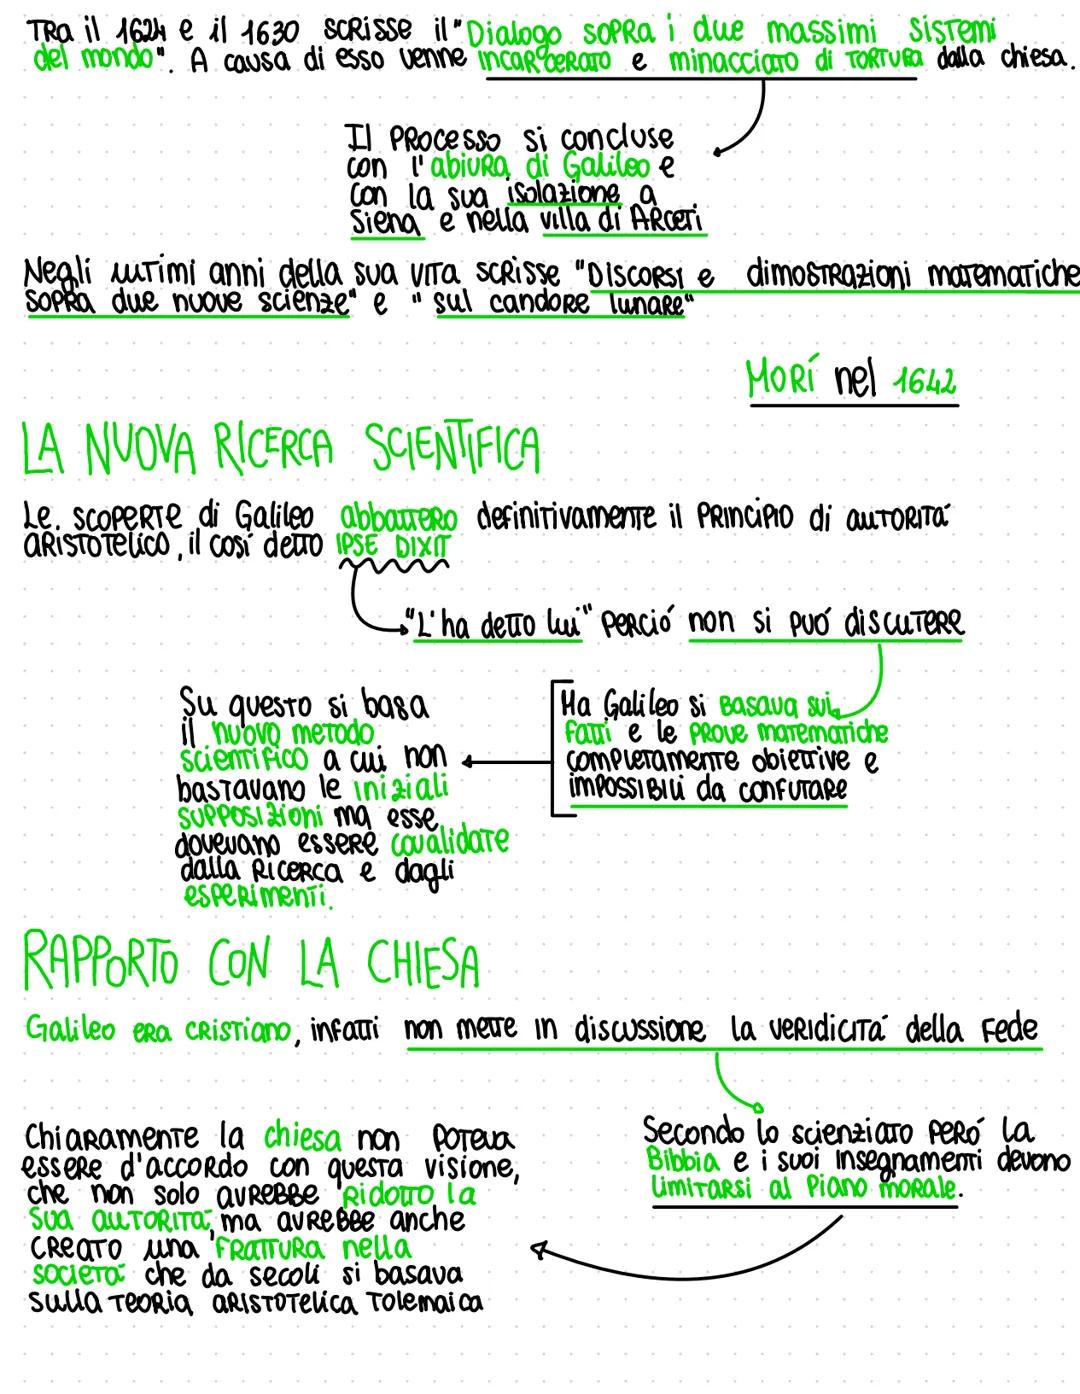 Tra il 1624 e il 1630 scrisse il "Dialogo sopra i due massimi sistemi
del mondo". A causa di esso venne incarcerato e minacciato di tortura dalla chiesa.
Il processo si concluse
con l'abiura di Galileo e
con la sua isolazione a
Siena e nella villa di Arceti
Negli ultimi anni della sua vita scrisse "Discorsi e dimostrazioni matematiche
sopra due nuove scienze" e "sul candore lunare"
Morí nel 1642
LA NUOVA RICERCA SCIENTIFICA
Le scoperte di Galileo abbattero definitivamente il principio di autoritá
aristotelico, il cosí detto IPSE DIXIT
"L'ha detto lui" perció non si puó discutere
Ma Galileo si basava sui
fatti e le prove matematiche
completamente obiettive e
impossibili da confutare
Su questo si basa
il nuovo metodo
scientifico a cui non
bastavano le iniziali
supposizioni ma esse
dovevano essere covalidate
dalla ricerca e dagli
esperimenti.
RAPPORTO CON LA CHIESA
Galileo era cristiano, infatti non mette in discussione la veridicitá della fede
Secondo lo scienziato peró la
Bibbia e i suoi insegnamenti devono
limitarsi al piano morale.
Chiaramente la chiesa non poteva
essere d'accordo con questa visione,
che non solo avrebbe ridotto la
sua autoritá, ma avrebbe anche
creato una frattura nella
societá che da secoli si basava
sulla teoria aristotelica tolemaica